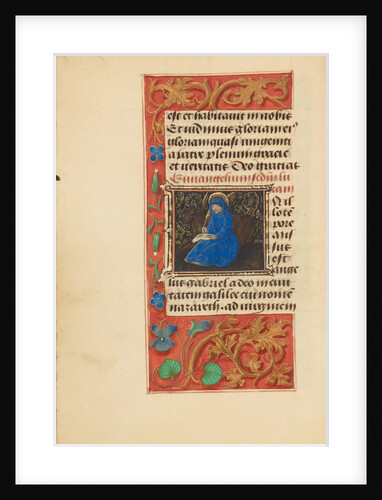 est et habitavit in nobis
Et vidimus gloriam ei
gloriam quasi unigeniti
a patre plenum gracie
et veritatis Deo gratias
Euuangelium scdm lu
cam
N il
lo te
pore
mis
sus
est
ange
lus gabriel a deo in civi
tatem galilee cui nome
nazareth. ad virginem